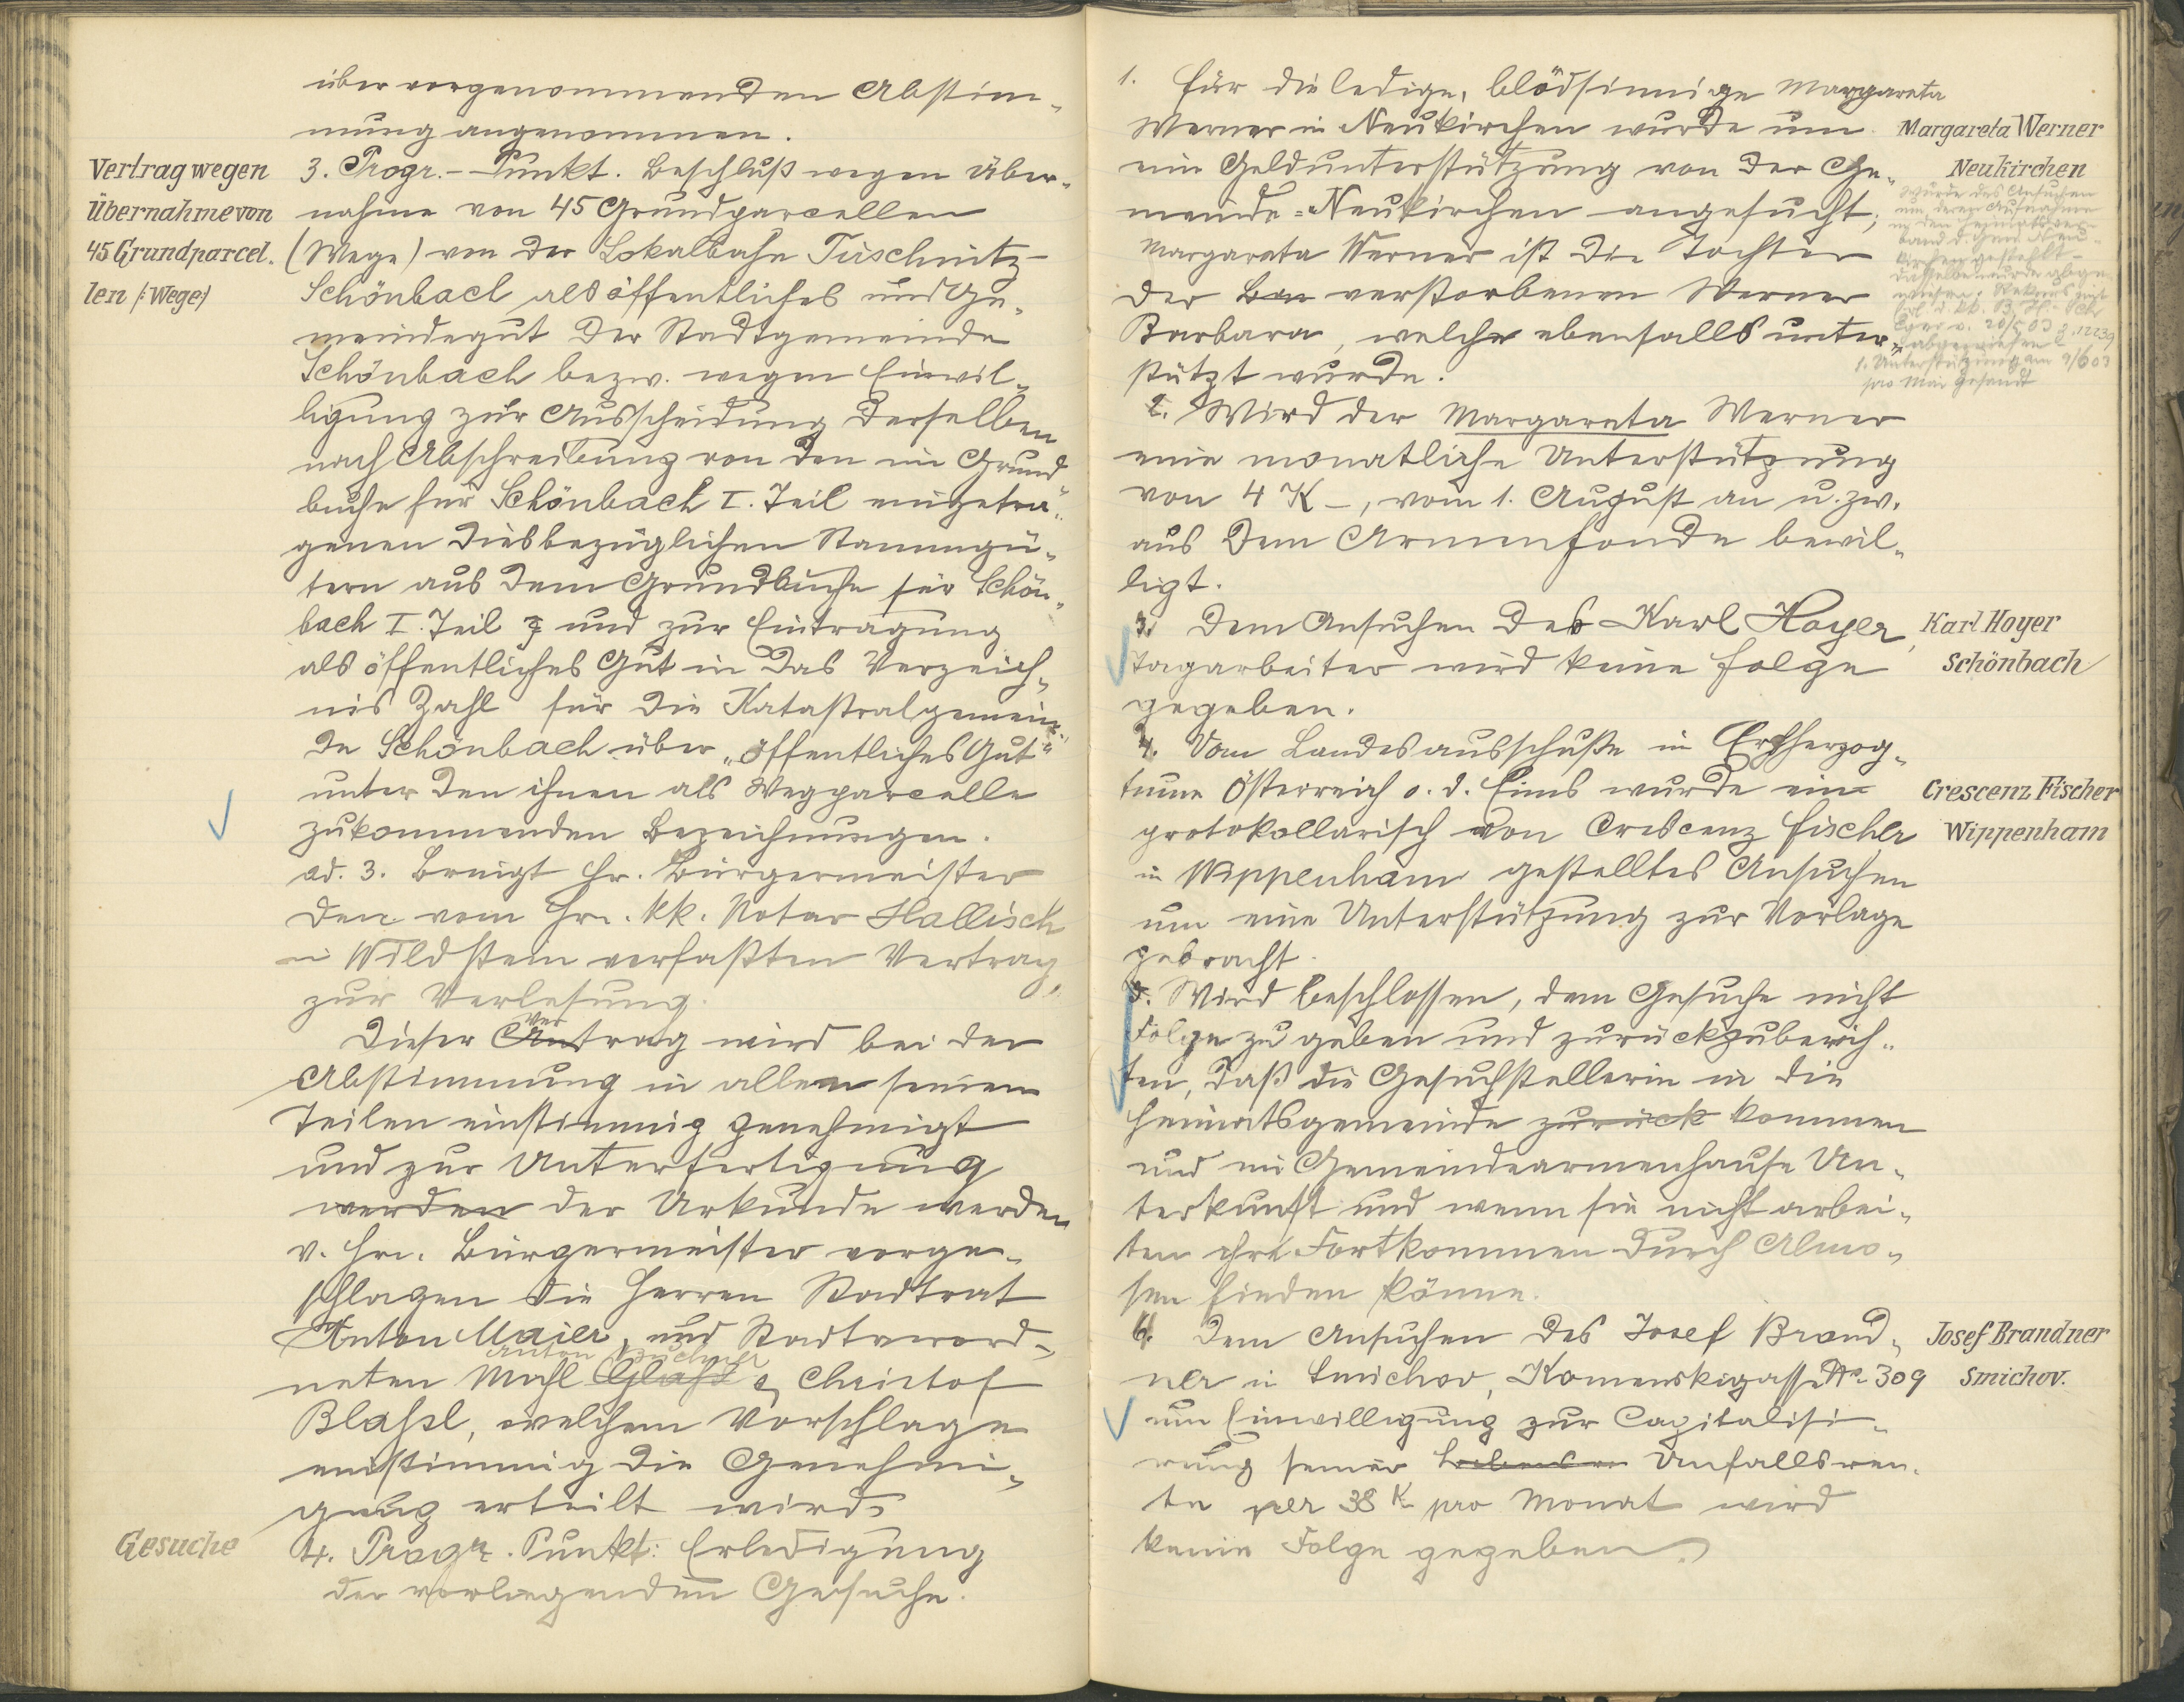 über vorgenommenden Abstim-
mung angenommen.
Vertrag wegen
Übernahme von
45 Grundparcel-
len /:Wege:/
3. Progr.-Punkt. Beschluß wegen Über-
nahme von 45 Grundparcellen
(Wege) von der Lokalbahn Tirschnitz-
Schönbach als öffentliches und Ge-
meindegut der Stadtgemeinde
Schönbach bezw. wegen Einwil-
ligung zur Ausscheidung derselben
nach Abschreibung von den im Grund-
buche für Schönbach I. Teil eingetra-
genen diesbezüglichen Stammgü-
tern aus dem Grundbuche für Schön-
bach I. Teil und zur Eintragung
als öffentliches Gut in das Verzeich-
nis Zahl für die Katastralgemein-
de Schönbach über „öffentliches Gut"
unter den ihnen als Wegparcelle
zukommenden Bezeichnungen.
ad. 3. Bringt Hr. Bürgermeister
den vom Hrn. kk. Notar Hallisch
in Wildstein verfaßten Vertrag
zur Verlesung.
Dieser Vertrag wird bei der
Abstimmung in allen seinen
Teilen einstimmig genehmigt
und zur Unterfertigung
werden der Urkunde werden
v. Hrn. Bürgermeister vorge-
schlagen die Herren Stadtrat
Anton Maier, und Stadtverord-
neten Anton & Christof
Blaßl, welchem Vorschlage
einstimmig die Genehmi-
gung erteilt wird.
Gesuche
4. Progr. Punkt: Erledigung
der vorliegenden Gesuche.
1. Für die ledige, blödsinnige Margareta
Werner in Neukirchen wurde um
ein Geldunterstützung von der Ge-
meinde-Neukirchen angesucht;
Margareta Werner ist die Tochter
der verstorbenen Werner
Barbara, welche ebenfalls unter-
stützt wurde.
Margareta Werner
Neukirchen
Wurde das Ansuchen
um deren Aufnahme
in den Heimatsver-
band d. Gem. Neu-
kirchen gestellt –
dasselbe wurde abge-
wiesen. Rekurs mit
Erl. d. kk. B. H.
Eger v. 20/5 03 Z. 12239
abgewiesen
1. Unterstützung am 9/6 03
pro Mai gesandt
2. Wird der Margareta Werner
eine monatliche Unterstützung
von 4 K –, vom 1. August an u. zw.
aus dem Armenfonde bewil-
ligt.
3. Dem Ansuchen des Karl Hoyer,
Tagarbeiter wird keine Folge
gegeben.
Karl Hoyer
Schönbach
4. Vom Landesausschuße in Erzherzog-
tume Österreich o. d. Enns wurde ein
protokollarisch von Crescenz Fischer
in Wippenham gestelltes Ansuchen
um eine Unterstützung zur Vorlage
gebracht.
Crescenz Fischer
Wippenham
5. Wird beschlossen, dem Gesuche nicht
Folge zu geben und zurückzuberich-
ten, daß die Gesuchstellerin in die
Heimatsgemeinde zurück kommen
und im Gemeindearmenhause Un-
terkunft und wenn sie nicht arbei-
ten ihr Fortkommen durch Almo-
sen finden könne.
6. Dem Ansuchen des Josef Brand-
ner in Smichov, Komenskigasse No 309
um Einwilligung zur Capitalisi-
rung seiner Unfallsren-
te per 38 K pro Monat wird
keine Folge gegeben.
Josef Brandner
Smichov.